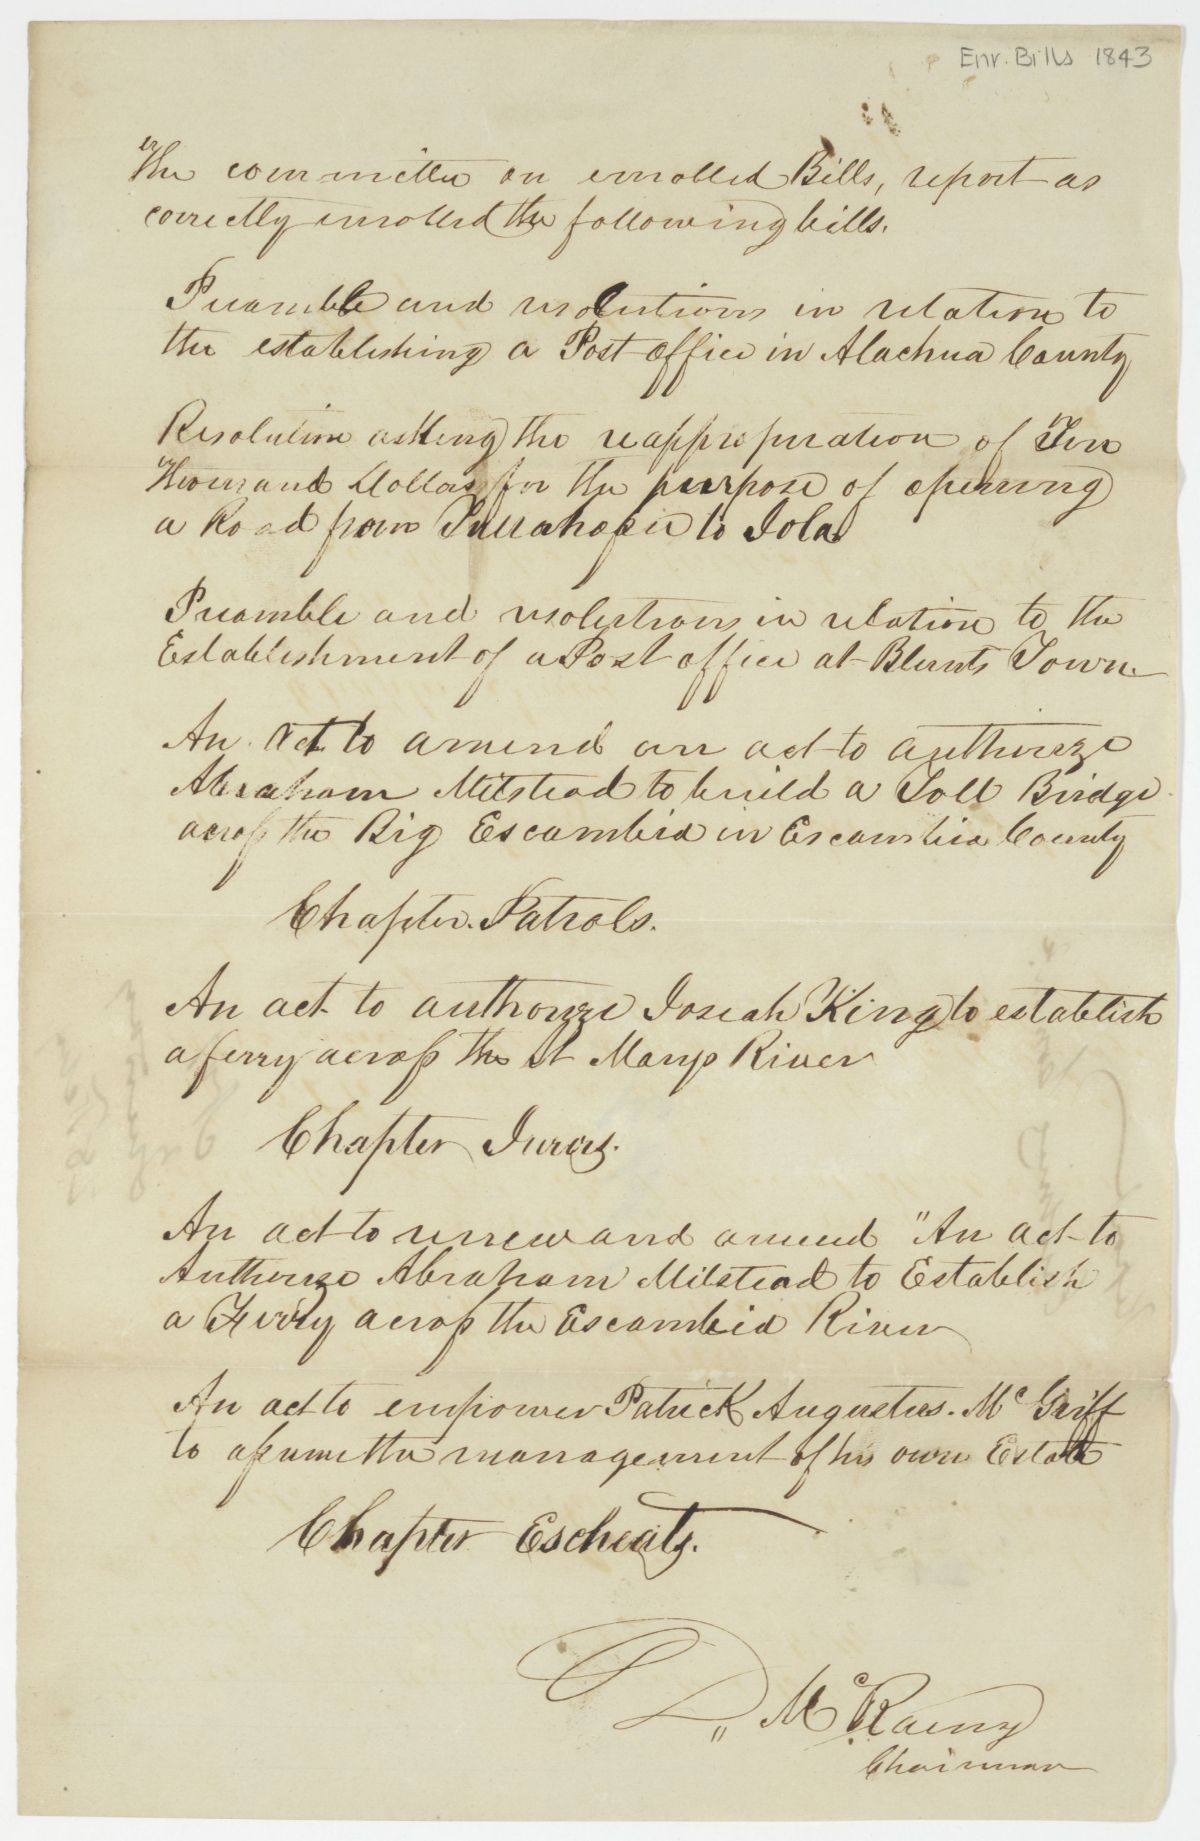 Enr. Bills 1843
The committee on enrolled Bills, report as
correctly enrolled the following bills.
Preamble and resolutions in relation to
the establishing a Post office in Alachua County
Resolution asking the reappropriation of Ten
thousand Dollars for the purpose of opening
a Road from Tallahassee to Iola
Preamble and resolutions in relation to the
Establishment of a Post office at Blunts Town
An Act to amend an act to authorize
Abraham Milstead to build a Toll Bridge
across the Big Escambia in Escambia County
Chapter. Patrols.
An act to authorize Josiah King to establish
a ferry across the St Marys River
Chapter Jurors.
An act to renew and amend "An act to
Authorize Abraham Milstead to Establish
a Ferry across the Escambia River
An act to empower Patrick Augustus. Mc Griff
to assume the management of his own Estate
Chapter Escheats.
D,, Mc Raeny
Chairman